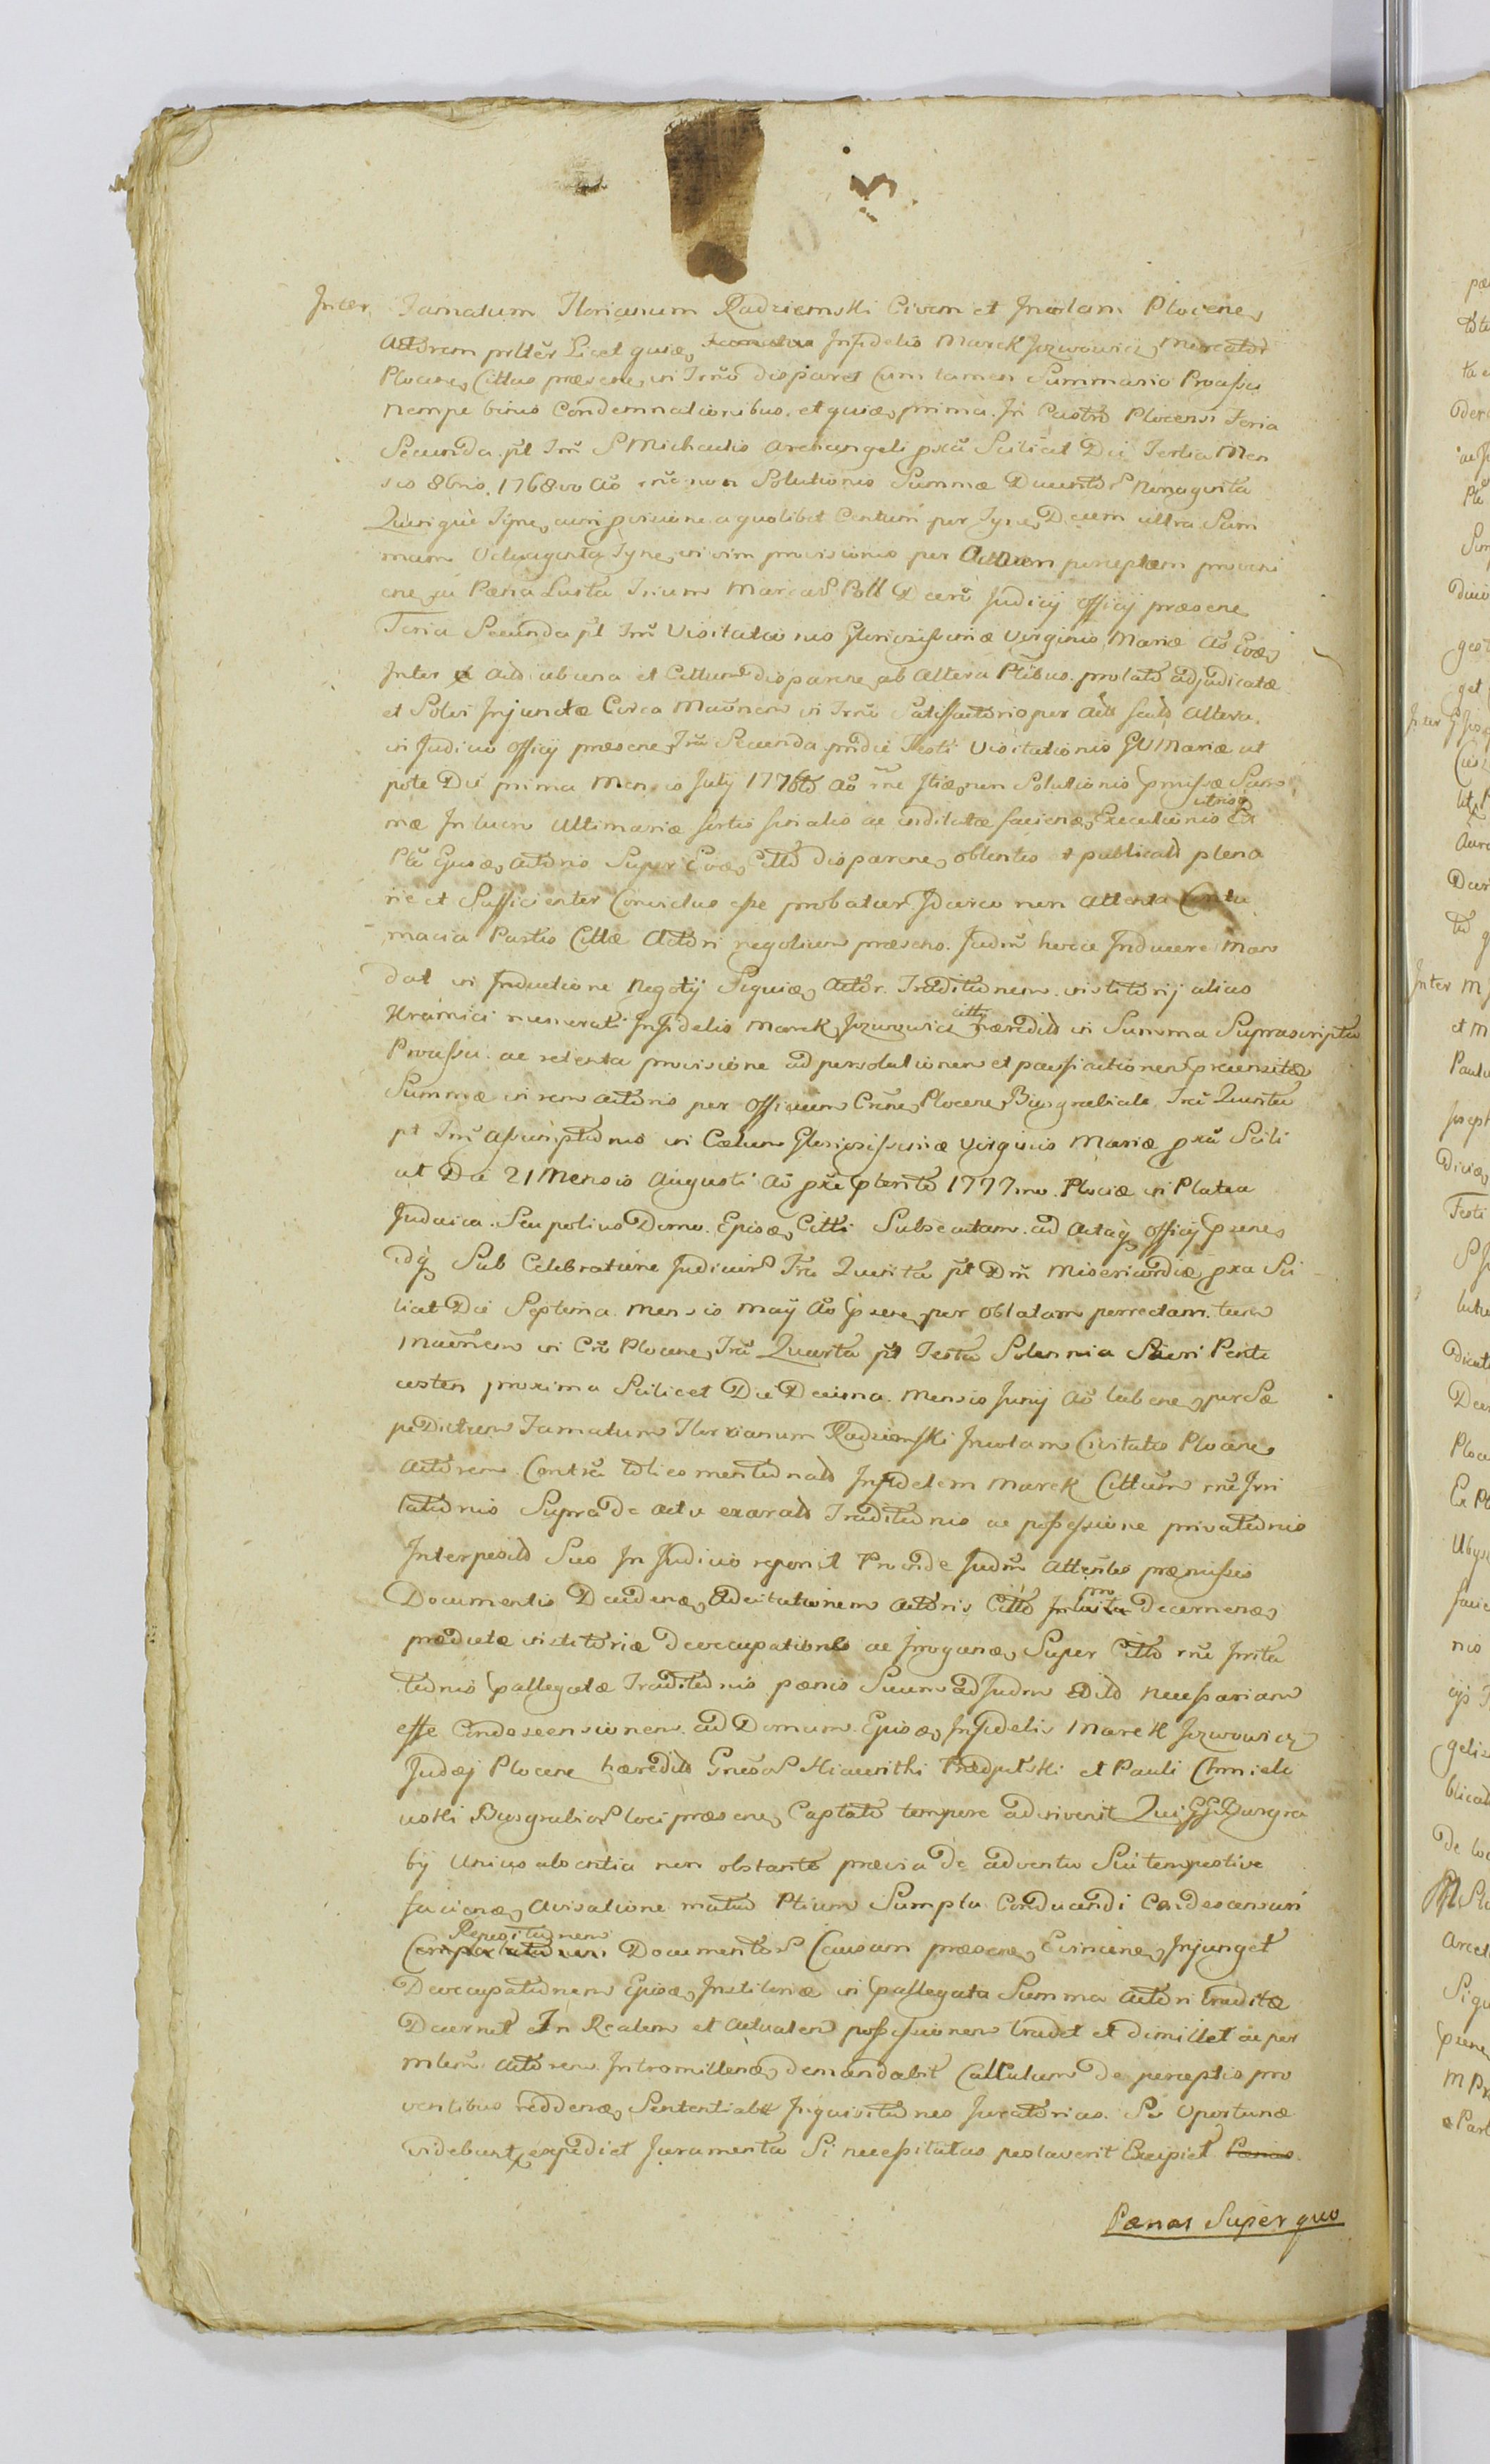 Inter Famatum Florianum Radziemski Civem et Incolam Plocenẽ
Actorem prlltẽr Licet quiaẽ Infidelis Marek Jozwowicz Mercator
Plocenẽ Cittus præsenẽ in Trnõ disparet Cum tamen Summario Processu
nempe binis Condemnationibus. et quiaẽ prima. In Castro Plocensi Feria
Secunda. pt Frm S Michaelis Archangeli pxã Scilicet Die Tertia Men
sis 8bris. 1768vo Aõ rnẽ non Solutionis Summæ Ducentoꝝ Nonaginta
Quinque Tynẽ cum provisione a quolibet Centum per Tynẽ Decem ultra Sum
mam Octuaginta Tynẽ in vim provisionis per Actorem perceptam proveni
enẽ Pæna Lusta Trium Marcaꝝ Poll Decrũ Judicij Officij præsenẽ
Feria Secunda pt Frm Visitationis Gloriosissimæ Virginis Mariæ Aõ Eodẽ
Inter Act ab una et Cittum disparenẽ ab Altera Ptibus. prolato adjudicatæ
et Solvi Injunctæ Circa Maõnem in Trnõ Satisfactorio per Act facto Altera.
in Judicio Officij præsenẽ Fria Secunda pridie Festi Visitationis GV Mariæ ut
pote Die prima Mensis July 1776to Aõ rne Jtiæ non Solutionis præmissæ Sum
mæ In lucro Ultimariæ sortis finalis ac inditatæ faciendæ Executionis utriusq Ex
Pte Ejusdẽ Actoris Super Eodẽ Citto disparenẽ obtentis et publicatis plena
rie et Sufficienter Convictus esse probatur Idcirco non attenta Contu
macia Partis Cittæ Actori negotium præsens. Judm hocce Inducere Man
dat in Inductione Negotij Siquidẽ Actor. Traditionem institorij alias
Kramnici nuncupati Infidelis Marek Jozwowicz citti hæredito in Summa Suprascripta
Processu. ac retenta provisione ad persolutionem et pacificationem præcensitæ
Summæ in rem Actoris per Officium Crnẽ Plocenẽ Burgrabiale Fria Quinta
pt Frm Assumptionis in Cælum Gloriosissimæ Virginis Mariæ pxã Scili
cet Die 21 Mensis Augusti Aõ pxẽ pterito 1777mo. Plociæ in Platea
Judaica. Seu potius Domo. Ejusdẽ Citti Subsecutam. ad Actaq Officij psenẽ
Idq Sub Celebratione Judicioꝝ Fria Quinta pt Dm Misericordiæ pxa Sci
licet Die Septima Mensis Maÿ Aõ psenẽ per Oblatam porrectam. tum
Maõnem in Crõ Plocenẽ Fria Quarta pt Festa Solennia Sacri Pente
costen proxima Scilicet Die Decima. Mensis Junij Aõ labenẽ per Sæ
pe Dictum Famatum Florianum Radziemski Incolam Civitatis Plocenẽ
Actorem. Contra toties mentionato Infidelem Marek Cittum rne Irri
tationis Supra de actu exarato Traditionis ac possessione privationis
Interposito Suo In Judicio reponit Proinde Judm Attentis præmissis
Documentis Decidendæ Adcitationem Actoris Citto pro decernendæ
prædictæ institoriæ deoccupatione ac Irrogandæ Super Citto rne Irrita
tionis pallegatæ Traditionis pænis Suum ad Judm Edito necessariam
esse Condescensionem. ad Domum. Ejusdẽ Infidelis Marek Jozwowicz
Judæj Plocenẽ hæredito Gnesoꝝ Hiacinthi Prædpełski et Pauli Chmiele
wski Burgrabioꝝ loci præsenẽ Captato tempore adinvenit Qui GG Burgra
bij Unius absentia non obstante prævia de adventu Sui tempestive
faciendæ avisatione motu Ptium Sumptu Conducendi Condescensuri
Repositionem Documentoꝝ Causam præsenẽ Evincenẽ Injunget
Deoccupationem Ejusdẽ Institoriæ in pallegata Summa Actori traditæ
Decernet et In Realem et Actualem possessionem tradet et dimittet ac per
mlem Actorem Intromittendæ demandabit Callculum de perceptis pro
ventibus reddendæ Sententiabit Inquisitiones Juratorias. Si Oportunæ
videbunt expediet Juramenta Si necessitatas postaverit Excipiet Pænas
Pænas Super quo